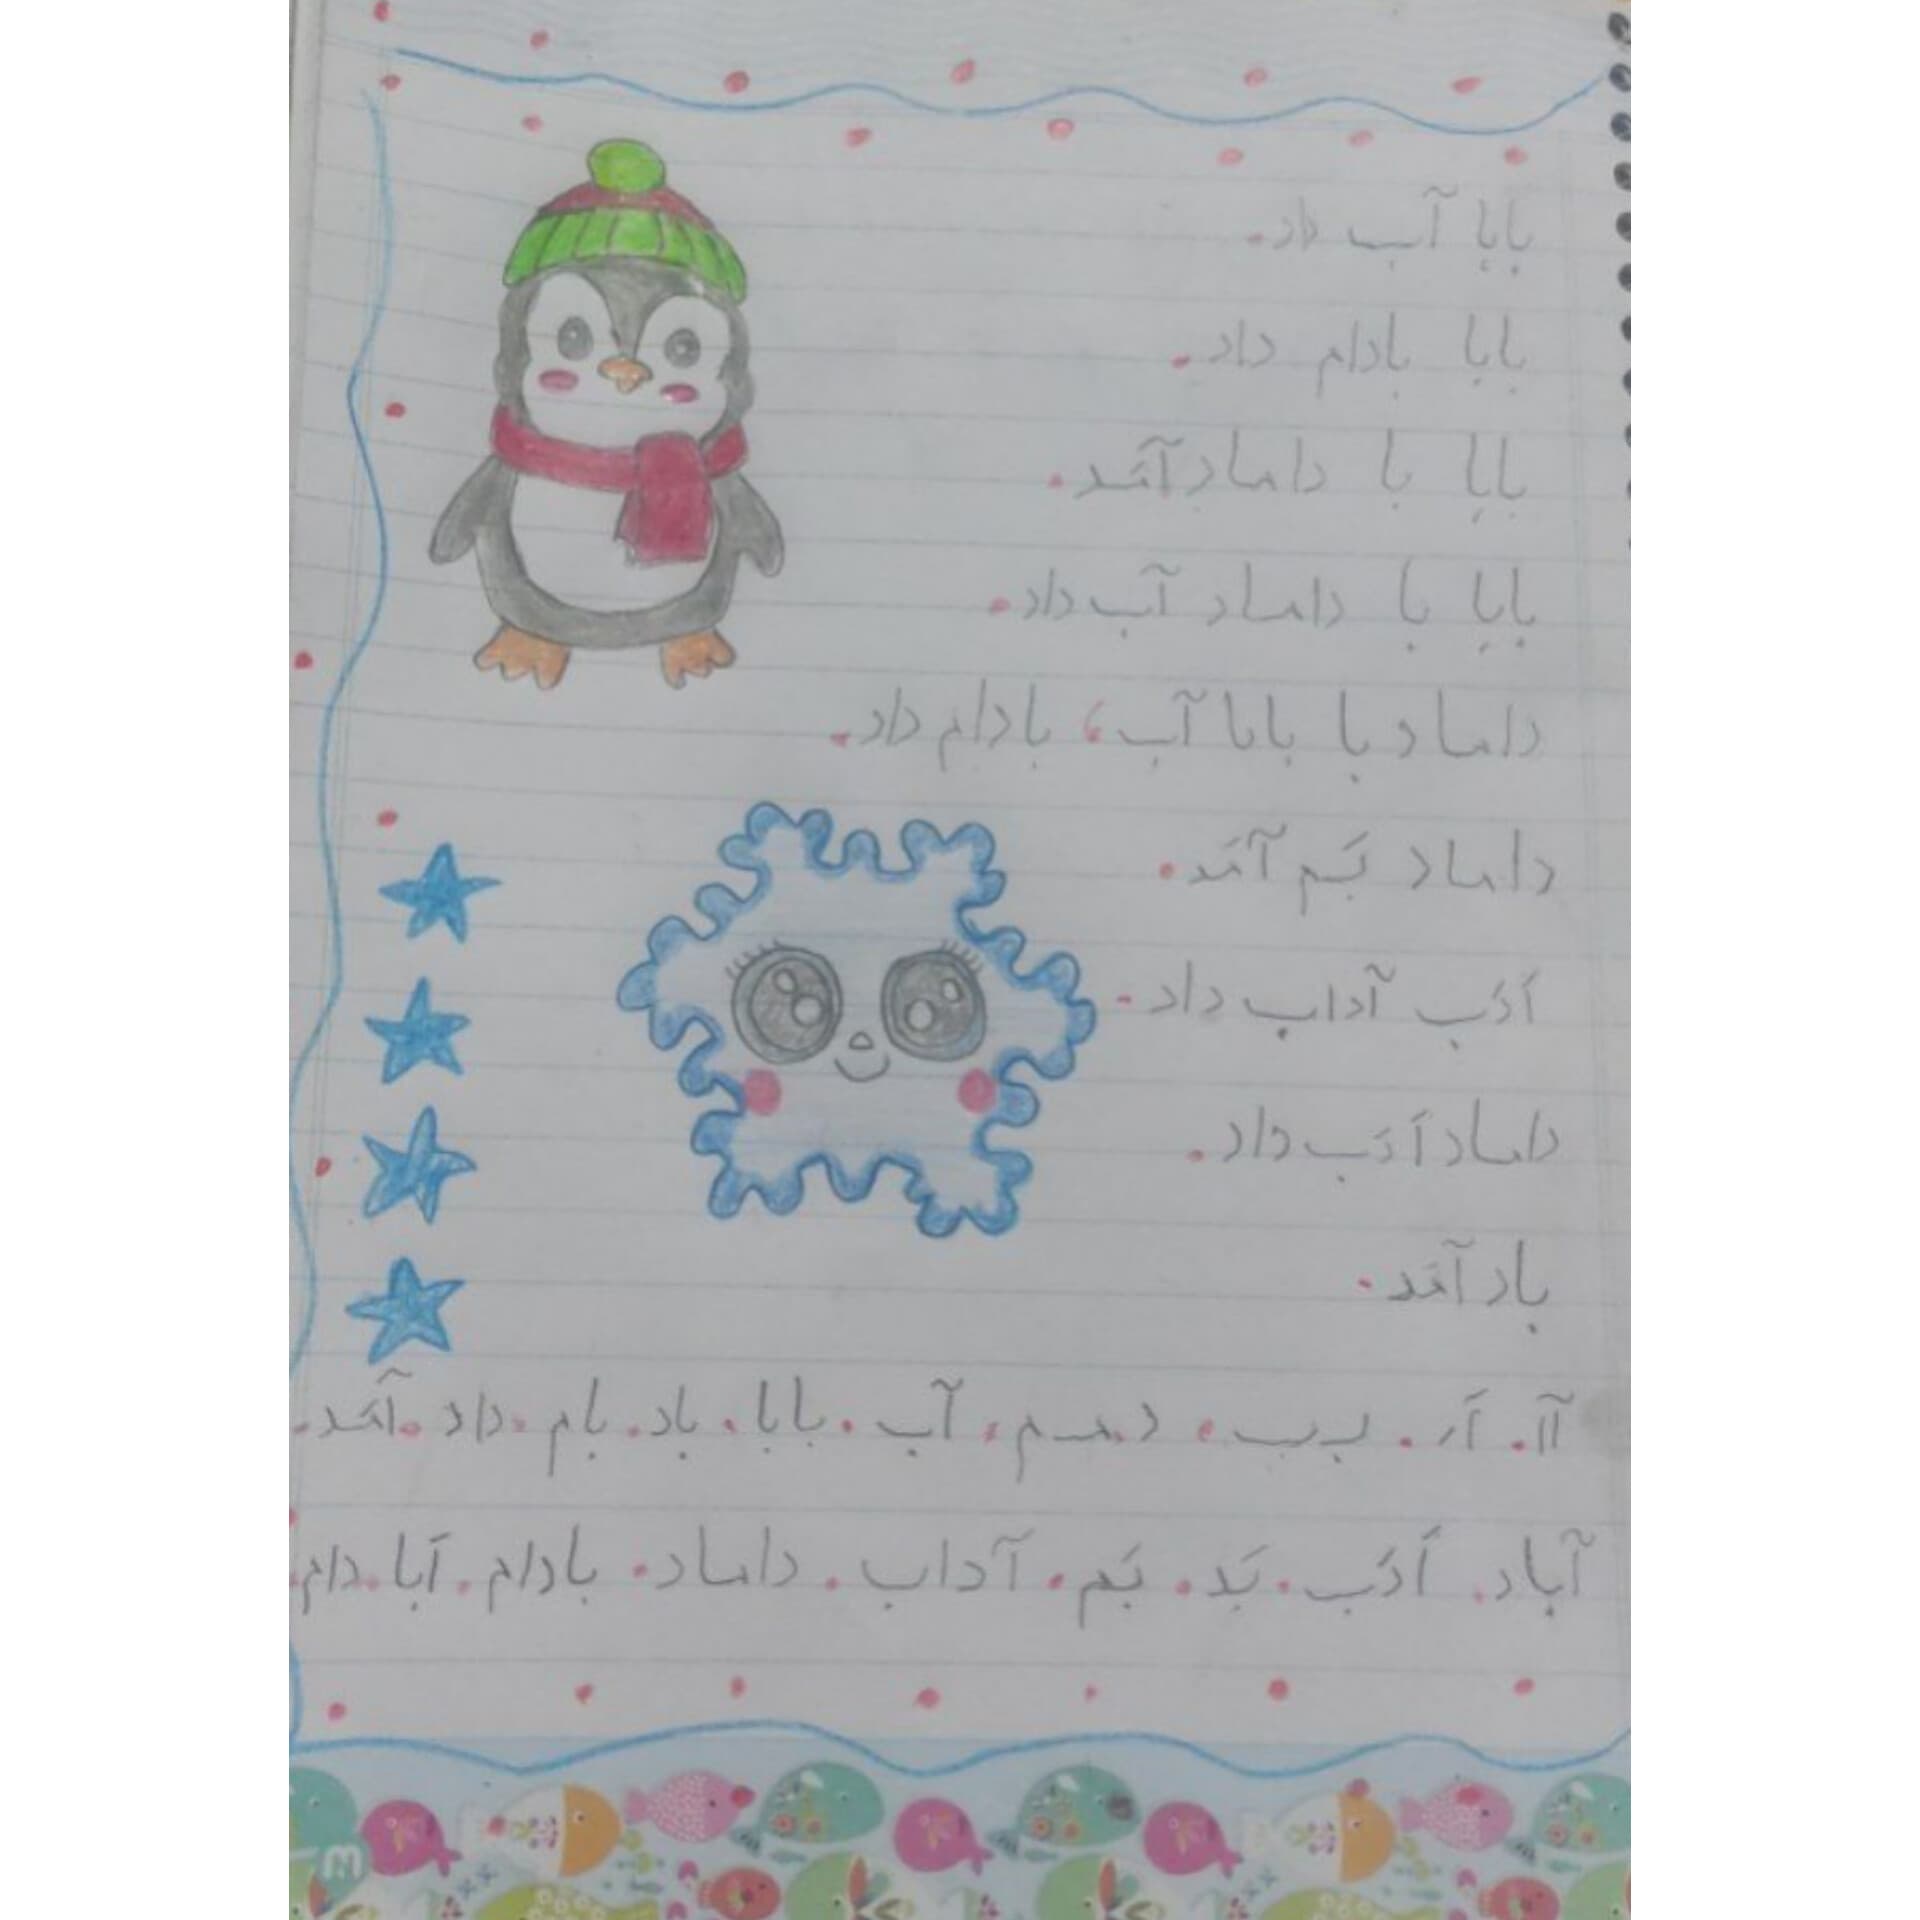 بابا آب داد.
بابا بادام داد.
بابا با داماد آمَد.
بابا با داماد آب داد.
داماد با بابا آب، بادام داد.
داماد بَم آمَد.
اَدَب آداب داد.
داماد اَدَب داد.
باد آمَد.
آ ا. اَ َ. بـ ب. د. مـ م. آب. بابا. باد. بام. داد. آمَد.
آباد. اَدَب. بَد. بَم. آداب. داماد. بادام. اَبا. دام.